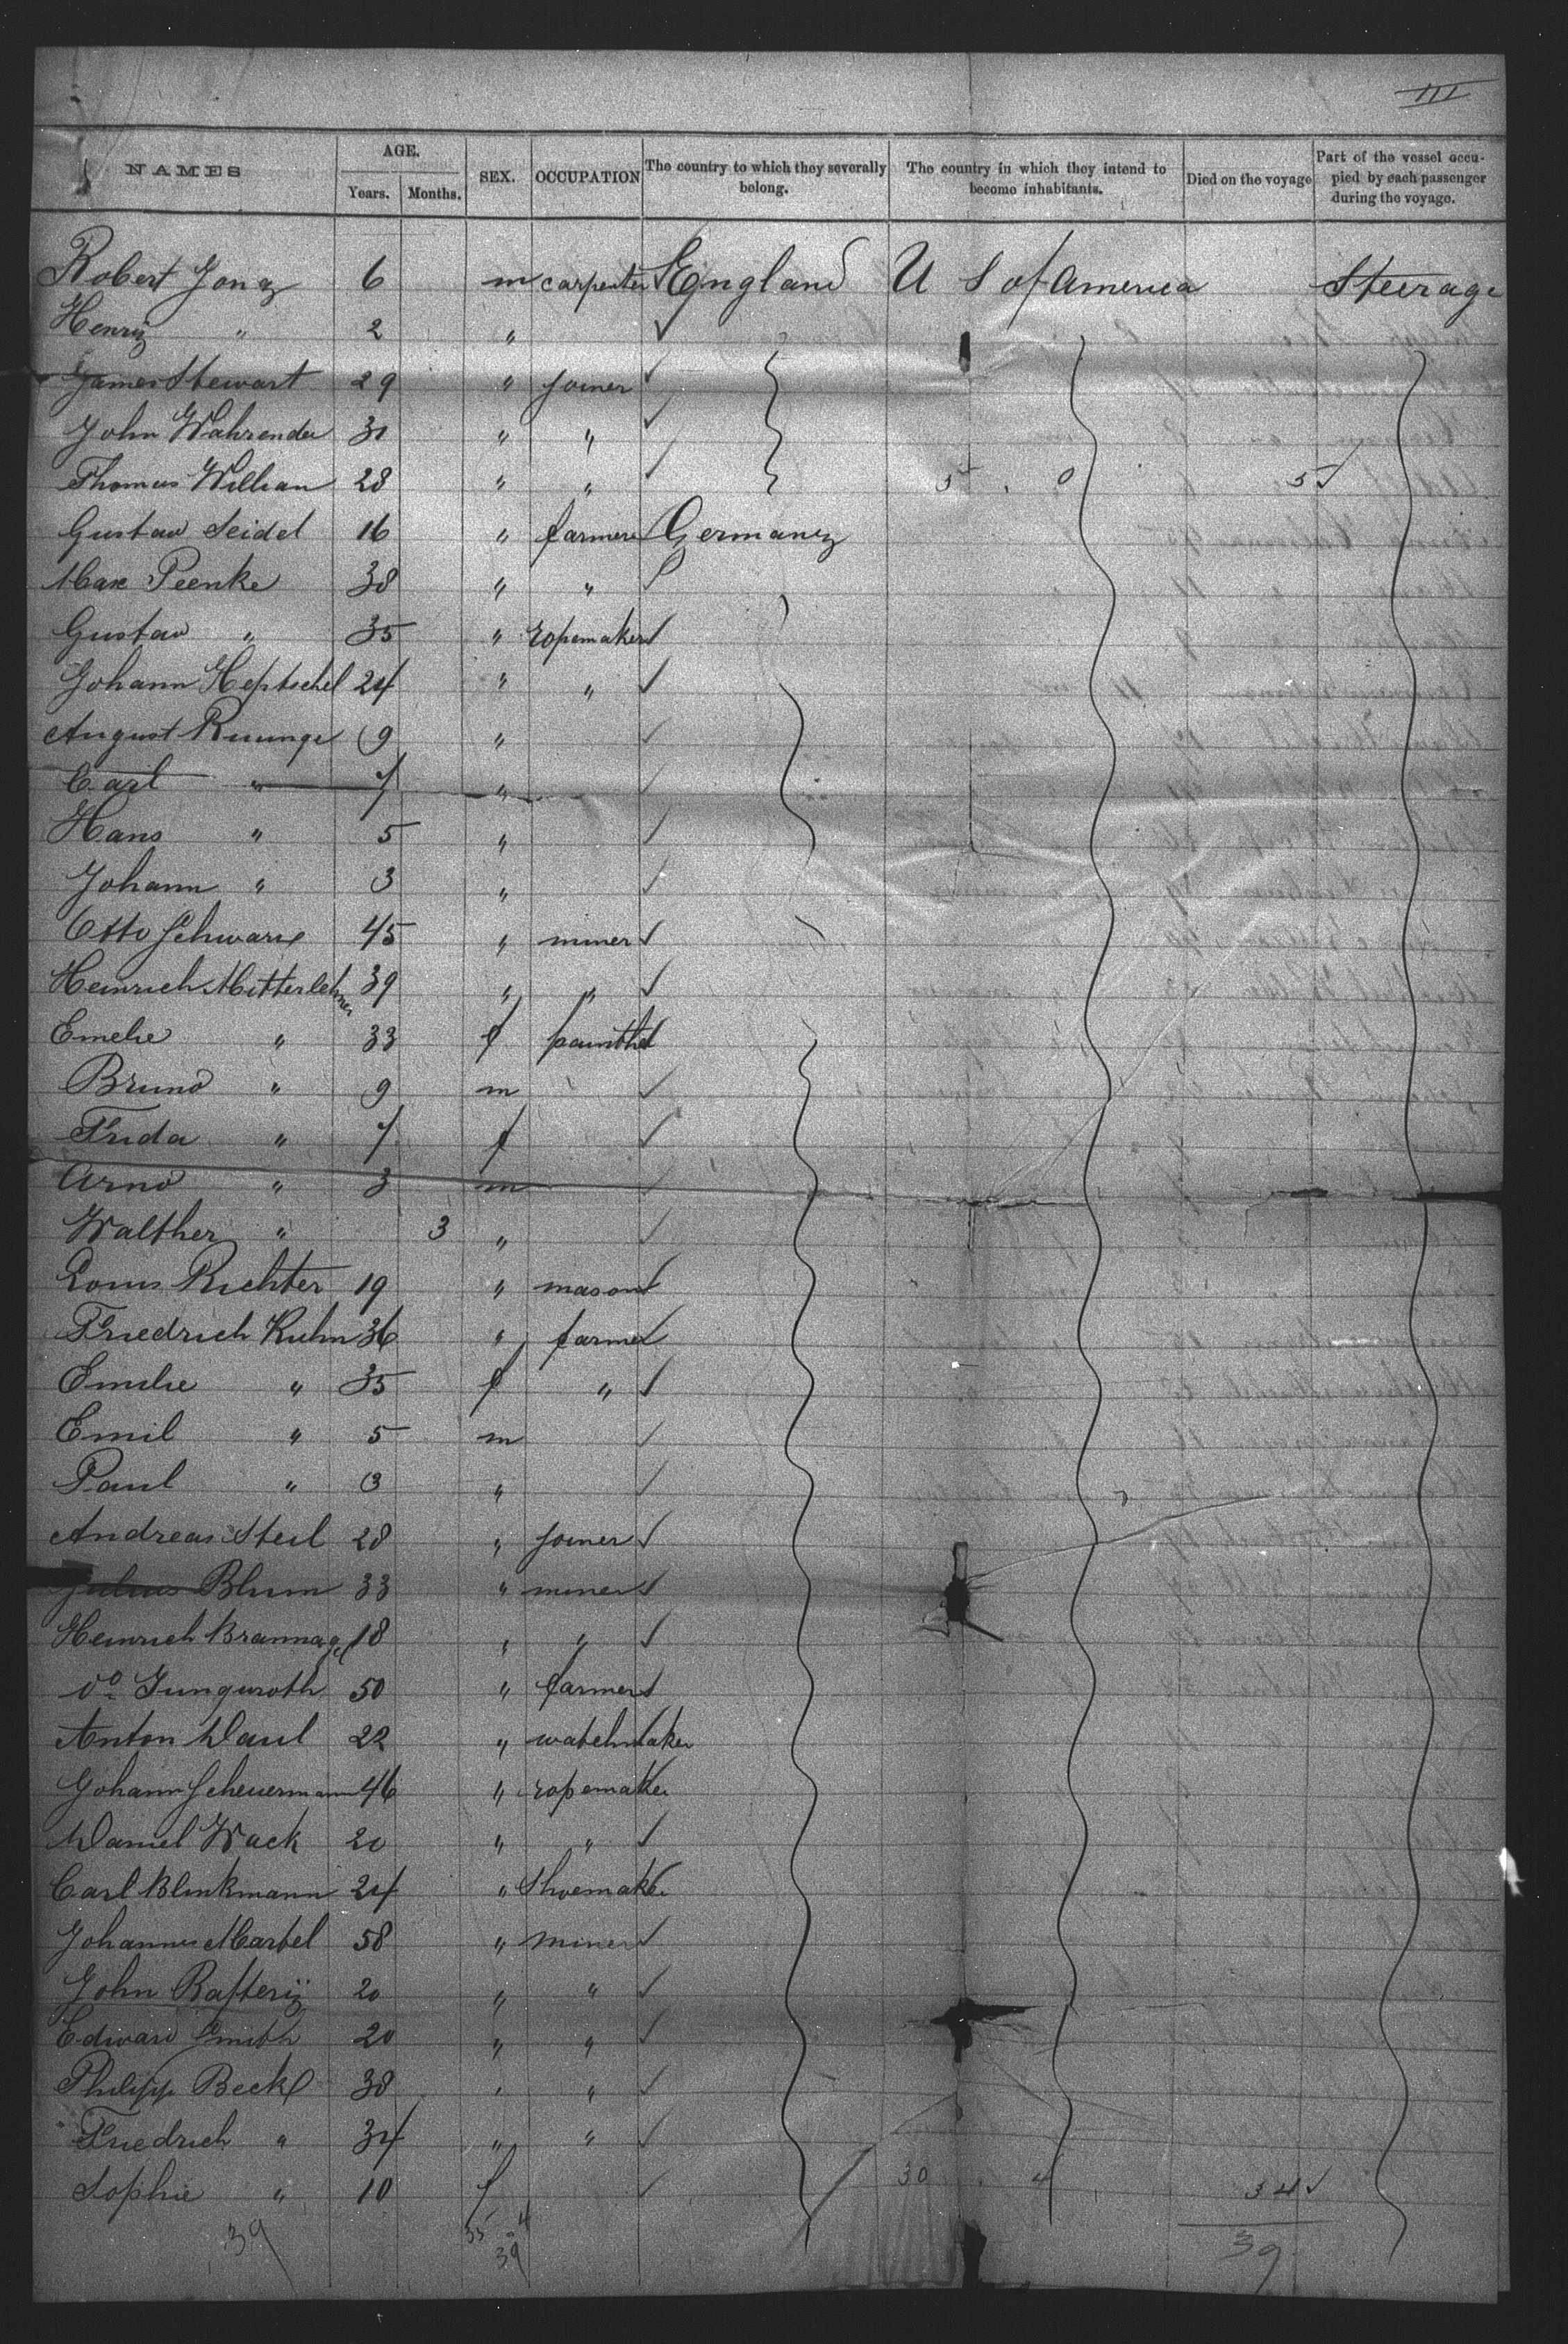 III
NAMES AGE. Years. Months. SEX. OCCUPATION The country to which they severally belong. The country in which they intend to become inhabitants. Died on the voyage Part of the vessel occupied by each passenger during the voyage.
Robert Jong 6 m carpenter England U S of America Steerage
Henry " 2 "
James Stewart 29 " joiner
John Wahrender 31 " "
Thomas Willian 28 " " 5 0 5
Gustav Seidel 16 " farmer Germany
Max Peenke 38 " "
Gustav " 35 " ropemaker
Johann Heptschel 24 " "
August Ruunge 9 "
Carl " 7 "
Hans " 5 "
Johann " 3 "
Otto Schwarz 45 " miner
Heinrich Mitterlehner 39 " "
Emelie " 33 f
Bruno " 9 m
Frida " 7 f
Arno " 3 m
Walther " 3 "
Louis Richter 19 " mason
Friedrich Kuhn 36 " farmer
Emilie " 35 f "
Emil " 5 m
Paul " 3 "
Andreas Steil 28 " joiner
Julius Blum 33 " miner
Heinrich Brannagel 18 " "
do Jungwroth 50 " farmer
Anton Daul 22 " watchmaker
Johann Scheuermann 46 " ropemaker
Daniel Wack 20 " "
Carl Blinkmann 24 " Shoemaker
Johannes Martel 58 " miner
John Raftery 20 " "
Edward Smith 20 " "
Philipp Beckl 38 " "
Friedrich " 34 " "
Sophie " 10 f 30 4 34
39 35 4 39 39